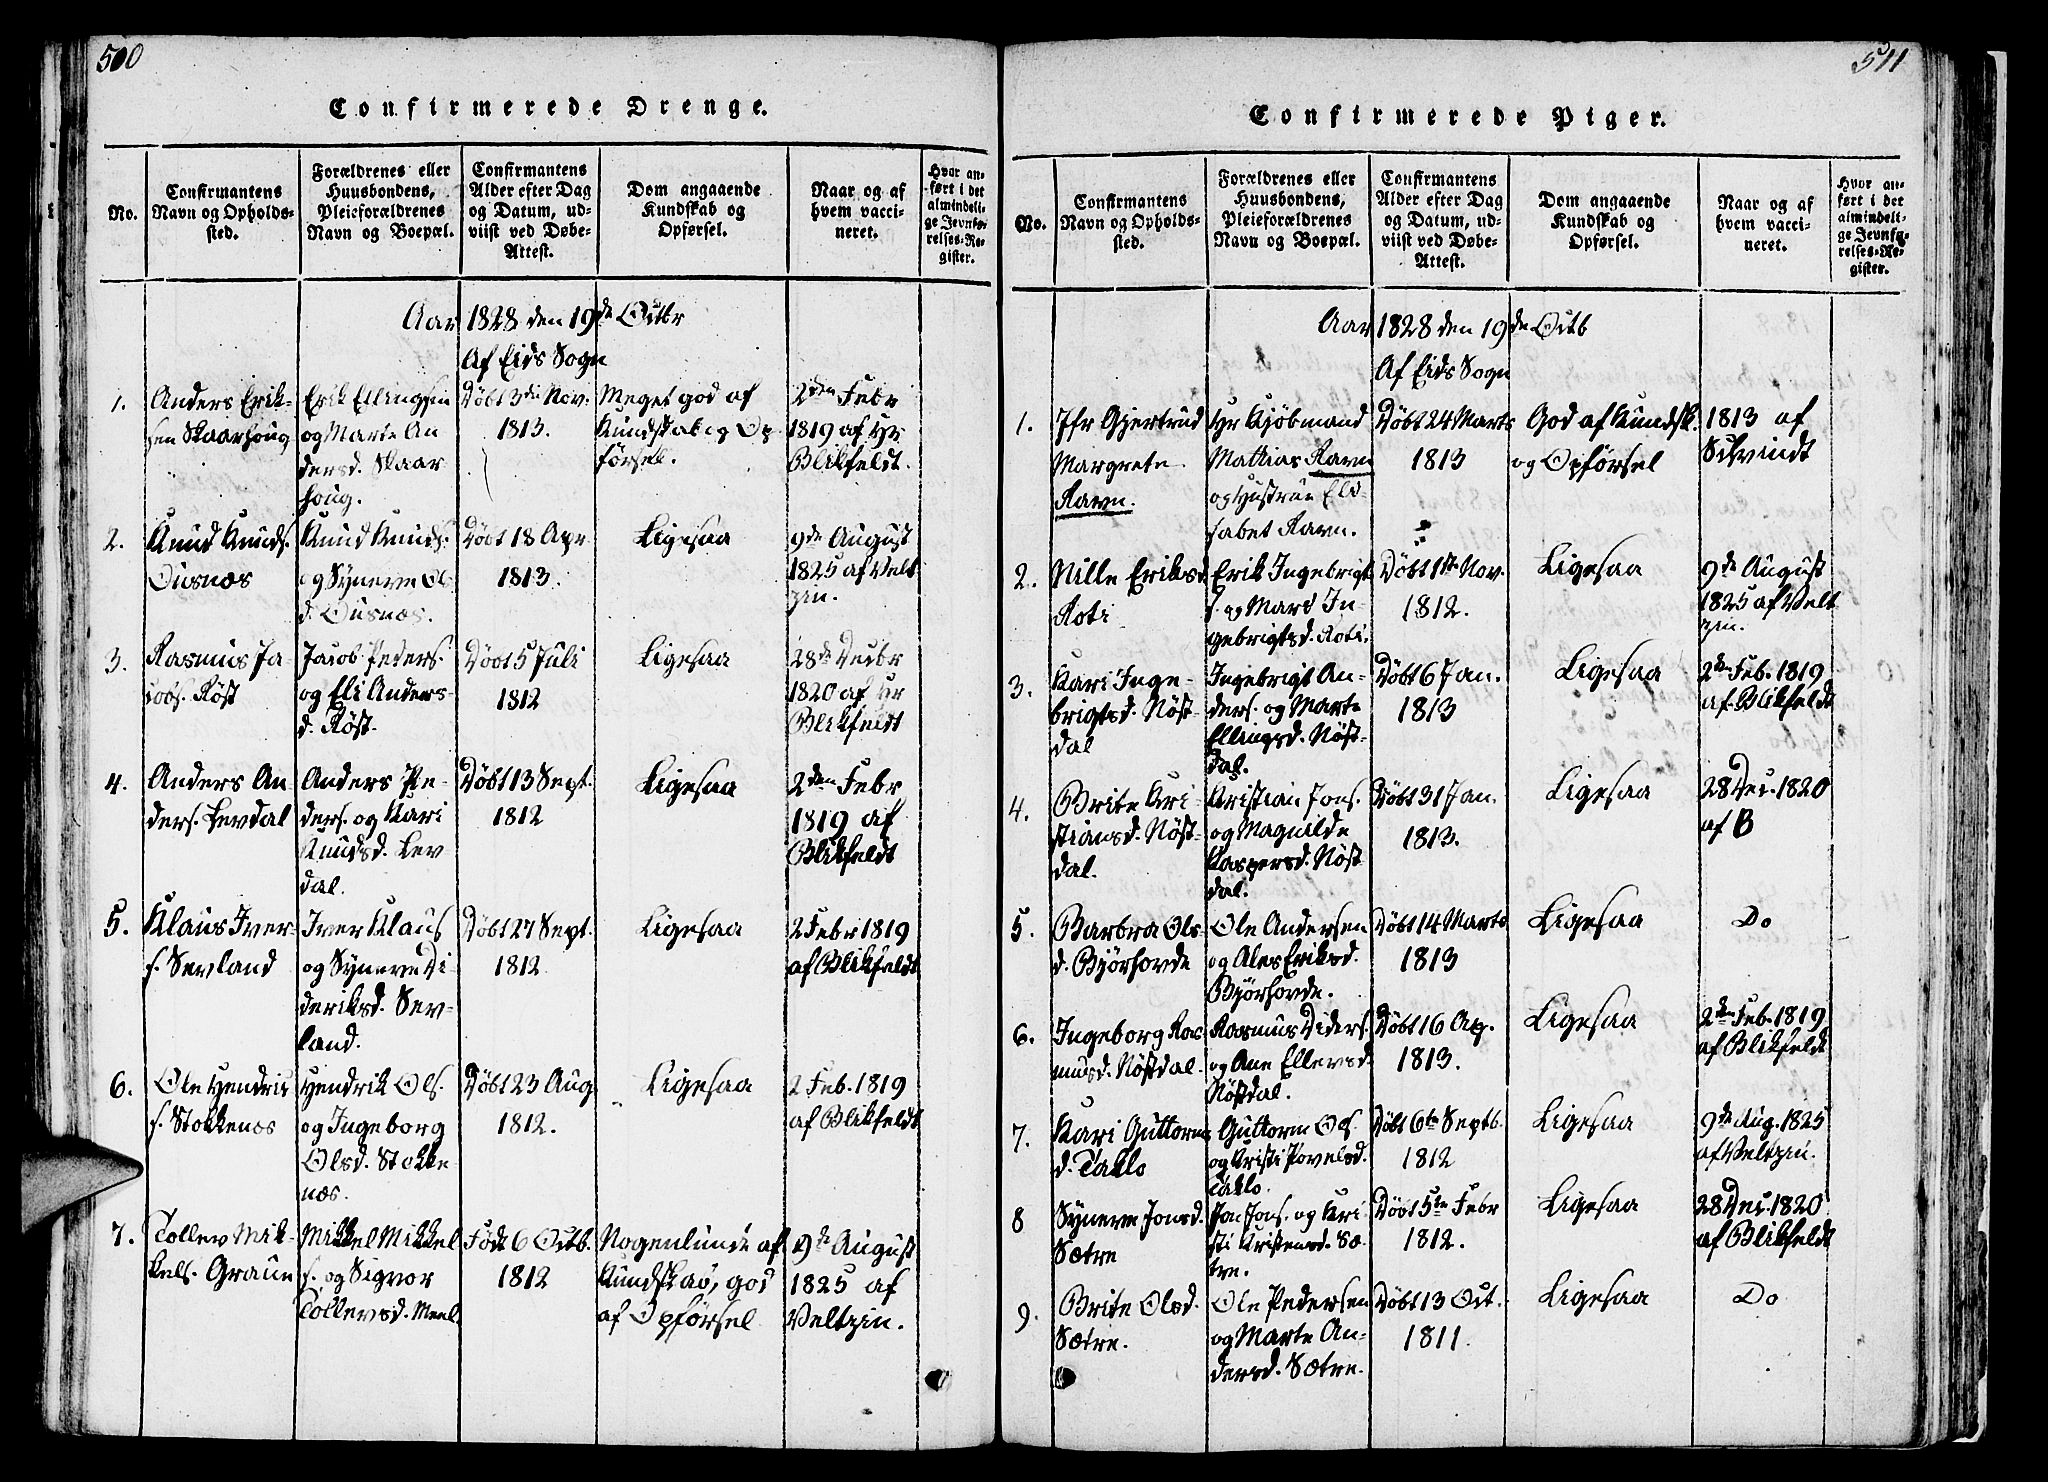 500
Confirmerede Drenge.
No.
Confirmantens
Navn og Opholds-
sted.
Forældrenes eller
Huusbondens,
Pleieforældrenes
Navn og Boepæl.
Confirmantens
Alder efter Dag
og Datum, ud-
viist ved Døbe-
Attest.
Dom angaaende
Kundskab og
Opførsel.
Naar og af
hvem vacci-
neret.
Hvor an-
ført i det
almindeli-
ge Jevnfø-
relses-Re-
gister.
Aar 1828 den 19de Octbr
Af Eids Sogn
1.
Anders Erik-
sen Skaarhoug
Erik Ellingsen
og Marte An
dersd. Skaar
houg.
Døbt 3den Nov.
1813.
Meget god af
Kundskab og Op
førsel.
2den Febr
1819 af Hr
Blikfeldt.
2.
Knud Knuds.
Ousnæs
Knud Knuds.
og Synneve Ols
d. Ousnæs.
Døbt 18 Apr
1813.
Ligesaa
9de August
1825 af Velt
zin.
3.
Rasmus Ja-
cobs. Røst
Jacob Peders.
og Eli Anders-
d. Røst.
Døbt 5 Juli
1812
Ligesaa
28de Decbr
1820 af Hr
Blikfeldt
4.
Anders An
ders. Levdal
Anders Pe-
ders. og Kari
Knudsd. Lev
dal.
Døbt 13 Sept.
1812
Ligesaa
2den Febr
1819 af
Blikfeldt
5.
Klaus Iver-
s. Sevland
Iver Klaus
og Synneve Di-
deriksd. Sev-
land.
Døbt 27 Sept.
1812
Ligesaa
2 Febr 1819
af Blikfeldt
6.
Ole Hendric
s. Stokkenæs
Hendrik Ols.
og Ingeborg
Olsd. Stokke-
næs.
Døbt 23 Aug
1812.
Ligesaa
2 Feb. 1819
af Blikfeldt
7.
Tollev Mik-
kels. Graun
Mikkel Mikkel
s. og Sigvor
Tollevsd. Meel.
Født 6 Octb.
1812
Nogenlunde af
Kundskab, god
af Opførsel
9de August
1825 af
Veltzin.
511
Confirmerede Piger.
No.
Confirmantens
Navn og Opholds-
sted.
Forældrenes eller
Huusbondens,
Pleieforældrenes
Navn og Boepæl.
Confirmantens
Alder efter Dag
og Datum, ud-
viist ved Døbe-
Attest.
Dom angaaende
Kundskab og
Opførsel.
Naar og af
hvem vacci-
neret.
Hvor an-
ført i det
almindeli-
ge Jevnfø-
relses-Re-
gister.
Aar 1828 den 19de Octb
Af Eids Sogn
1.
Jfr Gjertrud
Margrete
Ravn.
Hr Kjøbmand
Mathias Ravn
og Hustrue Eli-
sabet Ravn.
Døbt 24 Marts
1813
God af Kundsk.
og Opførsel
1813 af
2.
Nille Eriksd
Roti
Erik Ingebrigt
s. og Mari In-
gebrigtsd. Roti.
Døbt 1ste Nov.
1812.
Ligesaa
9de August
1825 af Velt
zin.
3.
Kari Inge-
brigtsd. Nøst-
dal
Ingebrigt An-
ders. og Marte
Ellingsd. Nøst-
dal.
Døbt 6 Jan.
1813
Ligesaa
2den Feb. 1819
af Blikfeldt
4.
Brite Kri-
stiansd. Nøst-
dal.
Kristian Jons.
og Magnilde
Kaspersd. Nøst
dal.
Døbt 31 Jan.
1813.
Ligesaa
28 Dec. 1820
af B
5.
Barbra Ols-
d. Bjørhovde
Ole Andersen
og Ales Eriksd.
Bjørhovde.
Døbt 14 Marts
1813
Ligesaa
Do
6.
Ingeborg Ras
musd. Nøstdal.
Rasmus Diders.
og Ane Ellersd.
Nøstdal.
Døbt 16 Ap.
1813.
Ligesaa
2den Feb. 1819
af Blikfeldt
7.
Kari Guttorms
d. Taklo
Guttorm Ols.
og Kristi Povelsd.
Taklo.
Døbt 6te Septb.
1812
Ligesaa
9de Aug. 1825
af Veltzin.
8
Synneve Jonsd.
Sætre
Jon Jons. og Kri-
sti Kristensd. Sæ-
tre.
Døbt 5te Febr
1812.
Ligesaa
28 Dec. 1820
af Blikfeldt
9.
Brite Olsd.
Sætre.
Ole Pedersen
og Marte An-
dersd. Sætre.
Døbt 13 Oct.
1811.
Ligesaa
Do